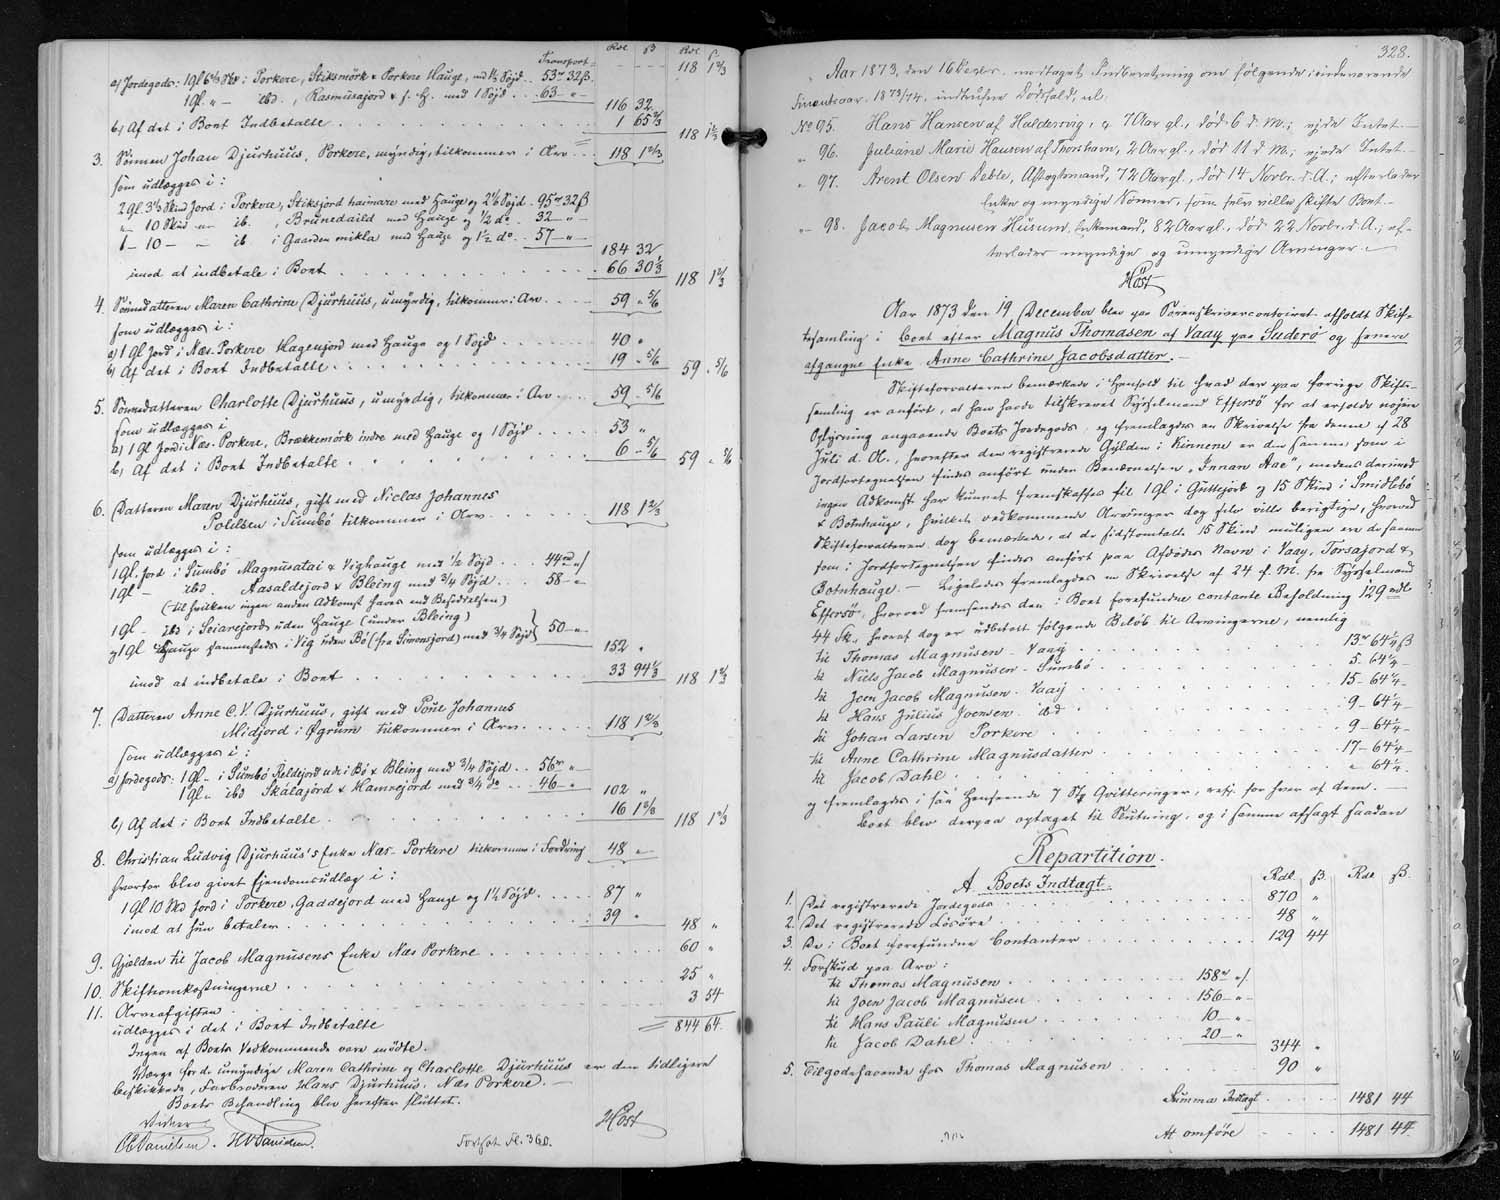 Rdl ß Rdl ß
Transport 118 1 2/3
a) Jordegods: 1 Gl 6 2/3 Skd i Porkere, Stiksmörk & Porkere Hauge, med 1 1/2 Söjd . . 53 - 32 ß
1 Gl. " - ibd., Rasmusajord & f. H. med 1 Söjd . . 63 - " - 116 32
b) Af det i Boet Indbetalte . . . 1 65 2/3 118 1 2/3
3. Sönnen Johan Djurhuus, Porkere, myndig, tilkommer i Arv . . . 118 1 2/3
som udlægges i :
2 Gl. 3 1/3 Skind Jord i Porkere, Stiksjord haimare med Hauge og 2 1/2 Söjd . 95 - 32 ß
" - 10 Skd - ib. , Brunedaild med Hauge og 1/2 do . 32 - " -
1 - 10 - - ib. i Gaarden mikla med Hauge og 1 1/2 do . . 57 - " - 184 32
imod at indbetale i Boet . . . 66 30 1/3 118 1 2/3
4. Sönnedatteren Maren Cathrine Djurhuus, umyndig, tilkommer i Arv . . . 59 " 5/6
som udlægges i :
a) 1 Gl Jord i Næs. Porkere Hagenjord med Hauge og 1 Söjd . . . 40 "
b) Af det i Boet Indbetalte . . . 19 " 5/6 59 " 5/6
5. Sönnedatteren Charlotte Djurhuus, umyndig, tilkommer i Arv . . . 59 " 5/6
som udlægges i
a) 1 Gl Jord i Næs. Porkere, Brækkemörk indre med Hauge og 1 Söjd . . . 53 "
b) Af det i Boet Indbetalte . . . 6 " 5/6 59 " 5/6
6. Datteren Maren Djurhuus, gift med Niclas Johannes
Poulsen i Sumbö tilkommer i Arv . . . 118 1 2/3
som udlægges i :
1 Gl. Jord i Sumbö Magnusatai & Vighauge med 1/2 Söjd . . . 44 rd "
1 Gl - ibd. Aasaldejord & Bleing med 3/4 Söjd . . . 58 - "
(til hvilken ingen anden Adkomst haves end Besiddelsen)
1 Gl - ibd i Seiarejord uden Hauge (under Bleing)
og 1 Gl Hauge sammesteds i Vig uden Bö (fra Simonsjord) med 3/4 Söjd } 50 - " 152 "
imod at indbetale i Boet . . . 33 94 1/3 118 1 2/3
7. Datteren Anne C. V. Djurhuus, gift med Poul Johannes
Midjord i Øgrum tilkommer i Arv . . . 118 1 2/3
som udlægges i :
a) Jordegods: 1 Gl - i Sumbö Reldejord ude i Bö & Bleing med 3/4 Söjd . . 56 "
1 Gl. ibd Skálajord & Hamrejord med 3/4 do . . . 46 - " 102 "
b) Af det i Boet Indbetalte . . . 16 1 2/3 118 1 2/3
8. Christian Ludvig Djurhuus's Enke Næs- Porkere tilkommer i Fordring 48 "
hvorfor blev givet Ejendomsudlæg i :
1 Gl 10 Skd Jord i Porkere, Gaddejord med Hauge og 1 1/2 Söjd . . . 87 "
imod at hun betaler . . . 39 " 48 "
9. Gjælden til Jacob Magnusens Enke Næs Porkere . . . 60 "
10. Skifteomkostningerne . . . 25 "
11. Arveafgiften . . . 3 54
udlægges i det i Boet Indbetalte = 844 64.
Ingen af Boets Vedkommende vare mödte.
Værge for de umyndige Maren Cathrine og Charlotte Djurhuus er den tidligere
beskikkede, Farbroderen Hans Djurhuus, Næs Porkere. -
Boets Behandling blev herefter sluttet.
Vidner Höst
HVDanielsen.
Fortsat Fl. 360.
328.
Aar 1873, den 16 Decbr. modtaget Indberetning om følgende i indeværende
Finantsaar 1873/74, indtrufne Dødsfald, nl:
No 95. Hans Hansen af Haldersvig, 7 Aar gl., död 6 d. M.; ejede Intet -
" 96. Juliane Marie Hansen af Thorshavn, 2 Aar gl., död 11 d. M.; ejede Intet -
" 97. Arent Olsen Deble, Aftægtsmand, 72 Aar gl., död 14 Novbr. d. A.; efterlader
Enke og myndige Sönner, som selv ville skifte Boet -
" 98. Jacob Magnusen Húsum, Enkemand, 82 Aar gl., död 22 Novbr. d. A.; ef-
terlader myndige og umyndige Arvinger. -
Höst
Aar 1873 den 19 December blev paa Sorenskrivercontoiret afholdt Skif-
tesamling i Boet efter Magnus Thomasen af Vaag paa Suderö og senere
afgangne Enke Anne Cathrine Jacobsdatter. -
Skifteforvalteren bemærkede i Henhold til hvad der paa forrige Skifte-
samling er anført, at han havde tilskrevet Sysselmand Effersö for at erholde nøjere
Oplysning angaaende Boets Jordegods, og fremlagdes en Skrivelse fra denne af 28
Juli d. A., hvorefter den registrerede Gylden i Kinnene er den samme som i
Jordfortegnelsen findes anført under Benævnelsen "Innan Aae", medens derimod
ingen Adkomst har kunnet fremskaffes til 1 Gl i Guttejord og 15 Skind i Smidlebö
& Botnhauge, hvilket vedkommende Arvinger dog selv ville berigtige, hvorved
Skifteforvalteren dog bemærkede, at de sidstomtalte 15 Skind muligen ere de samme
som i Jordfortegnelsen findes anført paa Afdødes Navn i Vaag, Torsajord &
Botnhauge. - Ligeledes fremlagdes en Skrivelse af 24 f. M. fra Sysselmand
Effersö, hvorved fremsendes den i Boet forefundne contante Beholdning 129 rdl
44 Sk., hvoraf dog er udbetalt følgende Beløb til Arvingerne, nemlig
til Thomas Magnusen - Vaag . . . 13 rd 64 1/4 ß
til Niels Jacob Magnusen - Sumbö . . . 5 - 64 1/4 -
til Joen Jacob Magnusen - Vaag . . . 15 - 64 1/4 -
til Hans Julius Joensen ibd . . . 9 - 64 1/4 -
til Johan Larsen Porkere . . . 9 - 64 1/4 -
til Anne Cathrine Magnusdatter . . . 17 - 64 1/4 -
til Jacob Dahl . . . " 64 1/4 -
og fremlagdes i saa Henseende 7 Stk Qvitteringer, resp. for hver af dem. -
Boet blev derpaa optaget til Slutning, og i samme afsagt saadan
Repartition.
A. Boets Indtægt. Rdl. ß. Rdl ß.
1. Det registrerede Jordegods . . . 870 "
2. Det registrerede Lösöre . . . 48 "
3. De i Boet forefundne Contanter . . . 129 44
4. Forskud paa Arv :
til Thomas Magnusen . . . 158 rd "
til Joen Jacob Magnusen . . . 156 - "
til Hans Pauli Magnusen . . . 10 - "
til Jacob Dahl . . . 20 - " 344 "
5. Tilgodehavende hos Thomas Magnusen . . . 90 "
Summa Indtægt . . . 1481 44
At omføre . . . 1481 44.